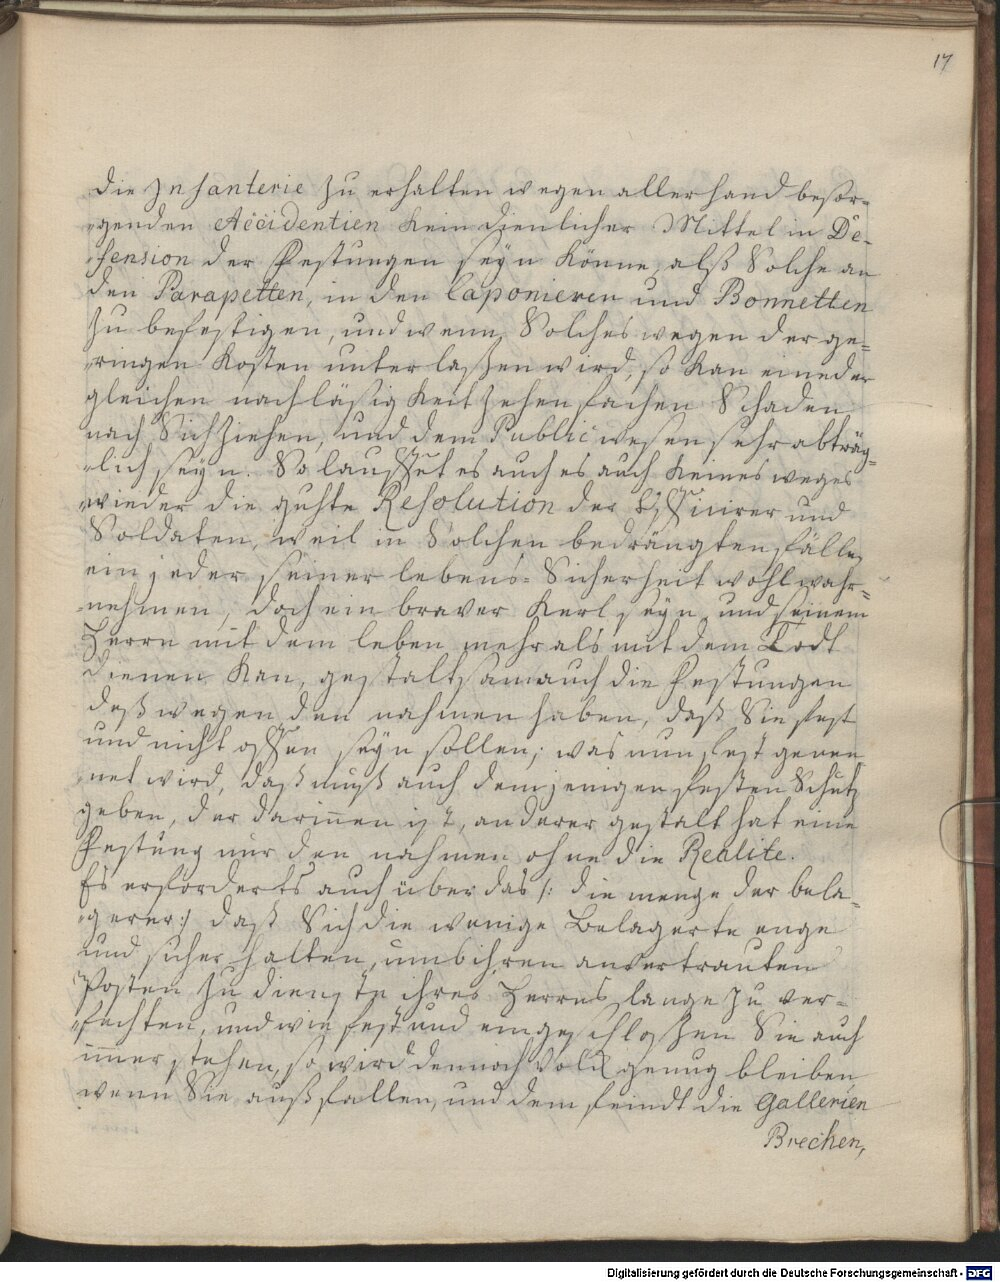 17
die Infanterie zu erhalten wegen allerhand besor-
genden Accidentien kein dienlicher Mittel in De-
fension der Festungen seyn könne, alß Solche an
den Parapetten, in den Caponieren und Bonnetten
zu befestigen, und wenn Solches wegen der ge-
ringen Kosten unterlaßen wird, so kan eine der
gleichen nachläßigkeit zehenfachen Schaden
nach Sich ziehen, und dem Public wesen sehr abträg-
lich seyn. So lauffet es auch es auch keines weges
wieder die guhte Resolution der Officirer und
Soldaten, weil in Solchen bedrängten fällen
ein jeder seiner lebens-Sicherheit wohl wahr-
nehmen, doch ein braver Kerl seyn, und seinem
Herrn mit dem leben mehr als mit dem Todt
dienen kan, gestaltsam auch die Festungen
deßwegen den nahmen haben, daß Sie fest
und nicht offen seyn sollen; was nun fest genen
net wird, daß muß auch demjenigen festen Schutz
geben, der darinnen ist, anderer gestalt hat eine
Festung nur den nahmen ohne die Realite.
Es erfordert auch über das /: die menge der bela-
gerer :/ daß Sich die wenige Belagerte enge
und sicher halten, umb ihren anvertrauten
Posten zu dienste ihres Herrns lange zu ver-
fechten, und wie fest und eingeschloßen Sie auch
immer stehen, so wird dennoch Volck genug bleiben
wenn Sie außfallen, und dem feindt die Gallerien
Brechen,
Digitalisierung gefördert durch die Deutsche Forschungsgemeinschaft - DFG